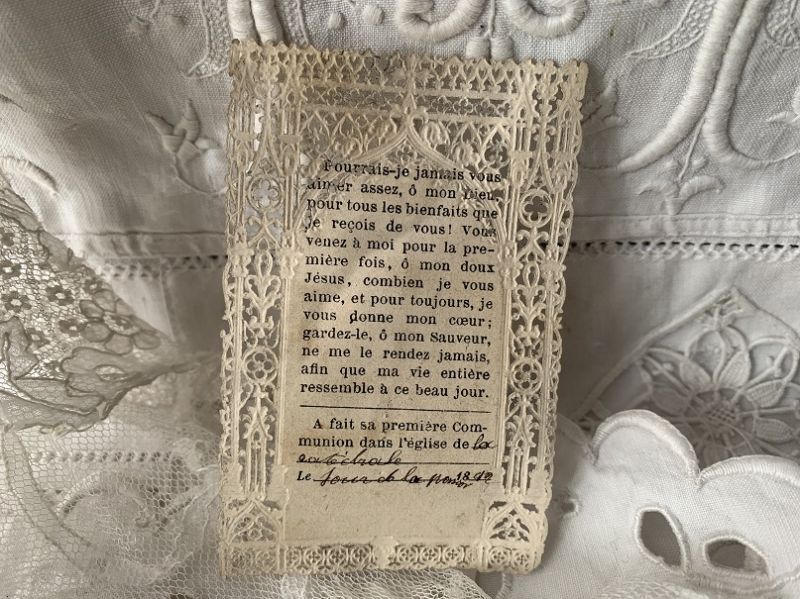 Pourrais-je jamais vous
aimer assez, ô mon Dieu,
pour tous les bienfaits que
je reçois de vous! Vous
venez à moi pour la pre-
mière fois, ô mon doux
Jésus, combien je vous
aime, et pour toujours, je
vous donne mon cœur;
gardez-le, ô mon Sauveur,
ne me le rendez jamais,
afin que ma vie entière
ressemble à ce beau jour.
A fait sa première Com-
munion dans l'église de la
cathédrale
Le jour de la